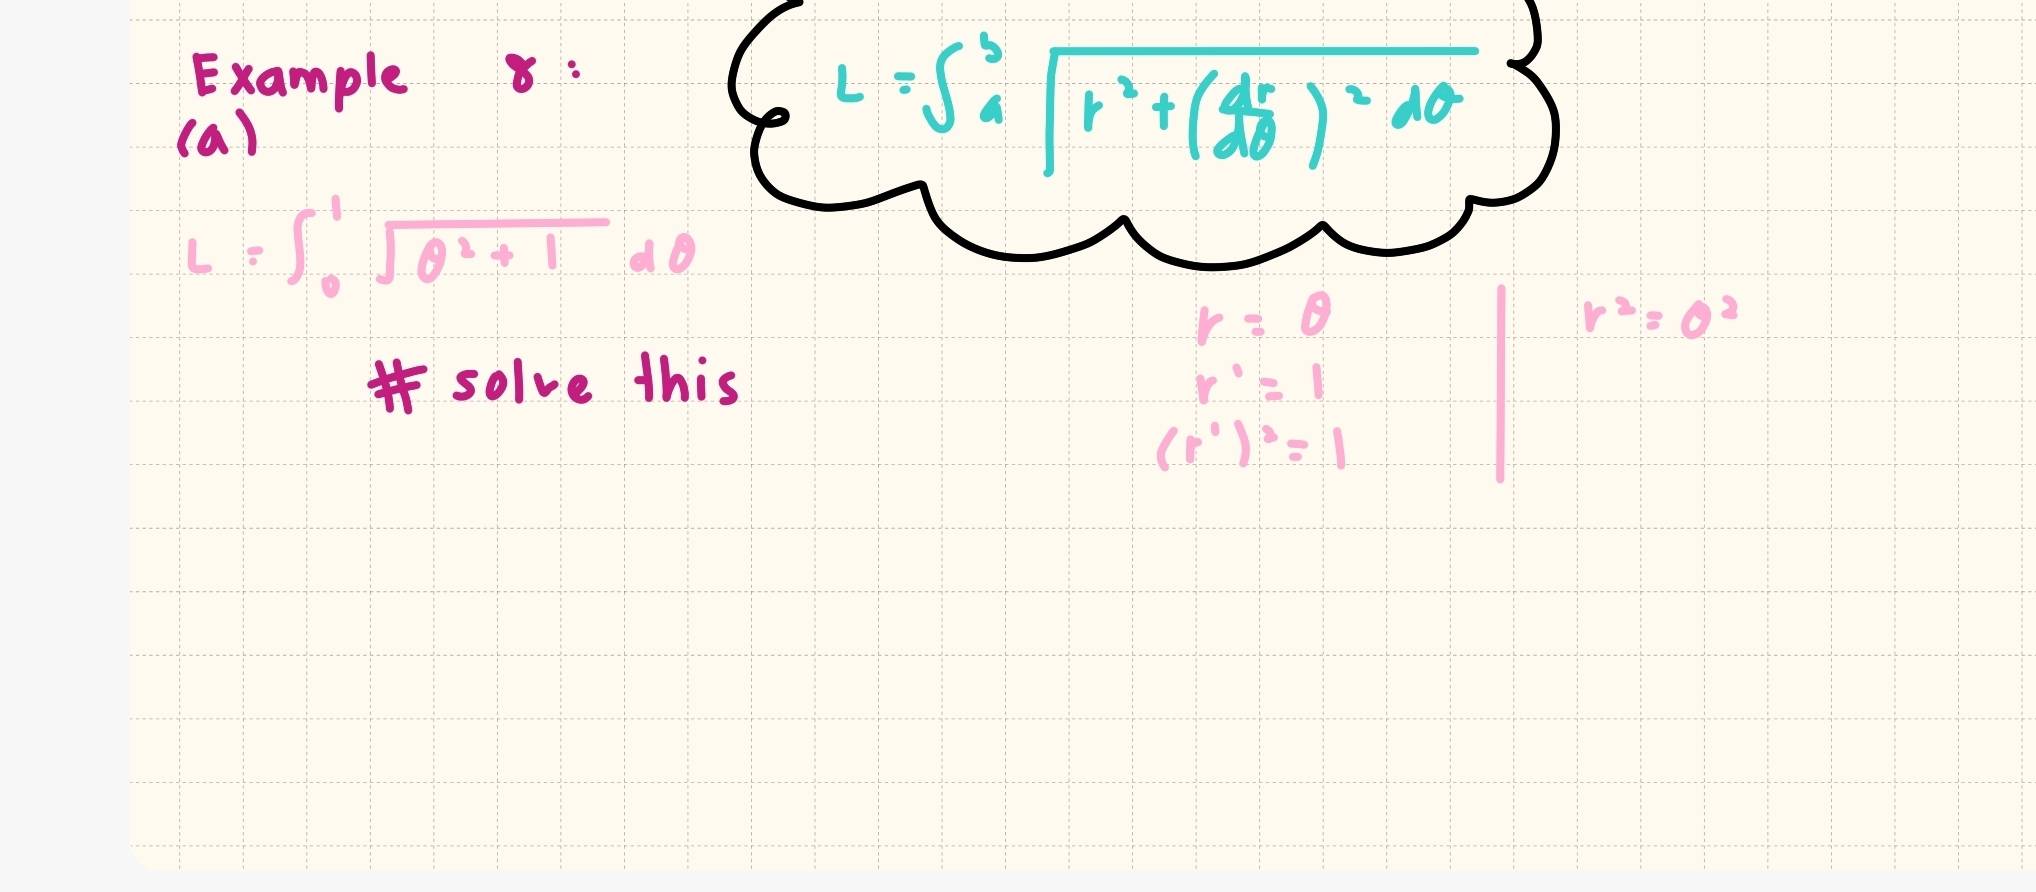 Example 8:
(a)
L = ∫ₐᵇ √(r² + (dr/dθ)² dθ
L = ∫₀¹ √(θ² + 1) dθ
# solve this
r = θ
r' = 1
(r')² = 1
r² = θ²